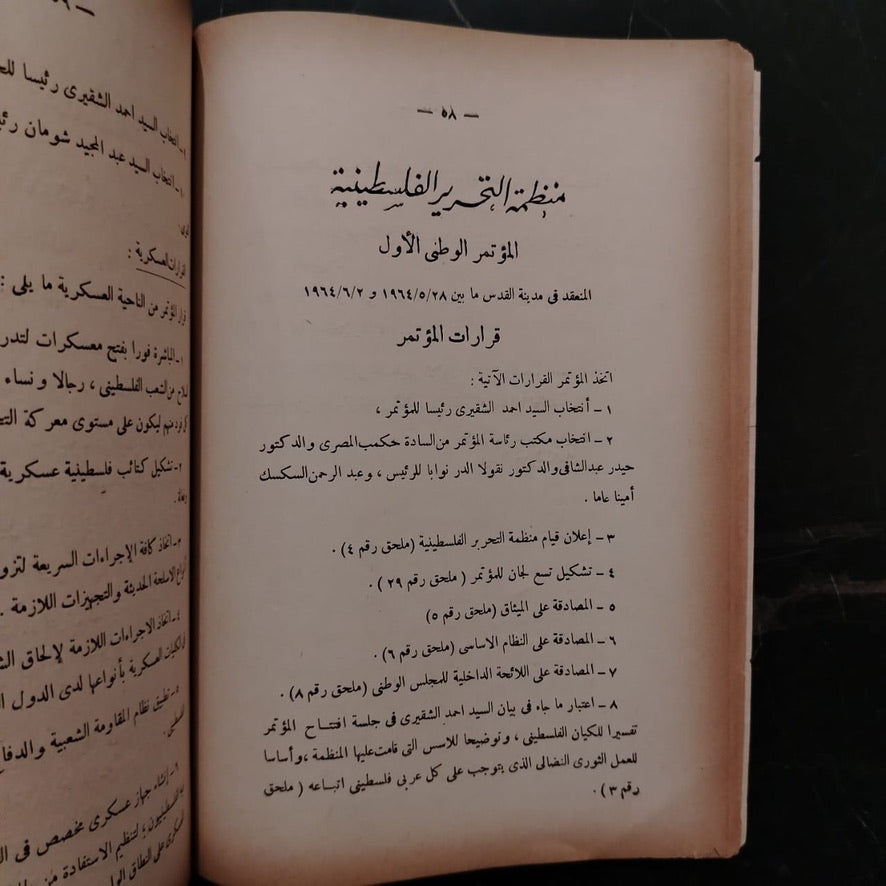 — ٥٨ —
منظمة التحرير الفلسطينية
المؤتمر الوطنى الأول
المنعقد فى مدينة القدس ما بين ١٩٦٤/٥/٢٨ و ١٩٦٤/٦/٢
قرارات المؤتمر
اتخذ المؤتمر القرارات الآتية :
١ ــ أنتخاب السيد احمد الشقيرى رئيسا للمؤتمر ،
٢ ــ انتخاب مكتب رئاسة المؤتمر من السادة حكمب المصرى والدكتور
حيدر عبدالشافى والدكتور نقولا الدر نوابا للرئيس ، وعبد الرحمن السكسك
أمينا عاما .
٣ ــ إعلان قيام منظمة التحرير الفلسطينية (ملحق رقم ٤) .
٤ ــ تشكيل تسع لجان للمؤتمر ( ملحق رقم ٢٩ ) .
٥ ــ المصادقة على الميثاق (ملحق رقم ٥)
٦ ــ المصادقة على النظام الاساسى (ملحق رقم ٦) .
٧ ــ المصادقة على اللائحة الداخلية للمجلس الوطنى (ملحق رقم ٨) .
٨ ــ اعتبار ما جاء فى بيان السيد احمد الشقيرى فى جلسة افتتاح المؤتمر
تفسيرا للكيان الفلسطينى ، وتوضيحا للاسس التى قامت عليها المنظمة ، وأساسا
للعمل الثورى النضالى الذى يتوجب على كل عربى فلسطينى اتباعه ( ملحق
رقم ٣ ) .
انتخاب السيد احمد الشقيرى رئيسا
١٠ ــ انتخاب السيد عبد المجيد شومان
القرارات العسكرية :
المؤتمر من الناحية العسكرية ما يلى :
١ ــ المباشرة فورا بفتح معسكرات
من الشعب الفلسطينى ، رجالا و نساء
منهم ليكون على مستوى معركة
٢ ــ تشكيل كتائب فلسطينية عسكرية
٣ ــ اتخاذ كافة الإجراءات السريعة
الاسلحة الحديثة والتجهيزات اللازمة .
٤ ــ اتخاذ الاجراءات اللازمة لإلحاق
الكليات العسكرية بأنواعها لدى الدول
٥ ــ تطبيق نظام المقاومة الشعبية
٦ ــ إنشاء جهاز عسكرى مخصص فى
لتنظيم الاستفادة من
على النطاق